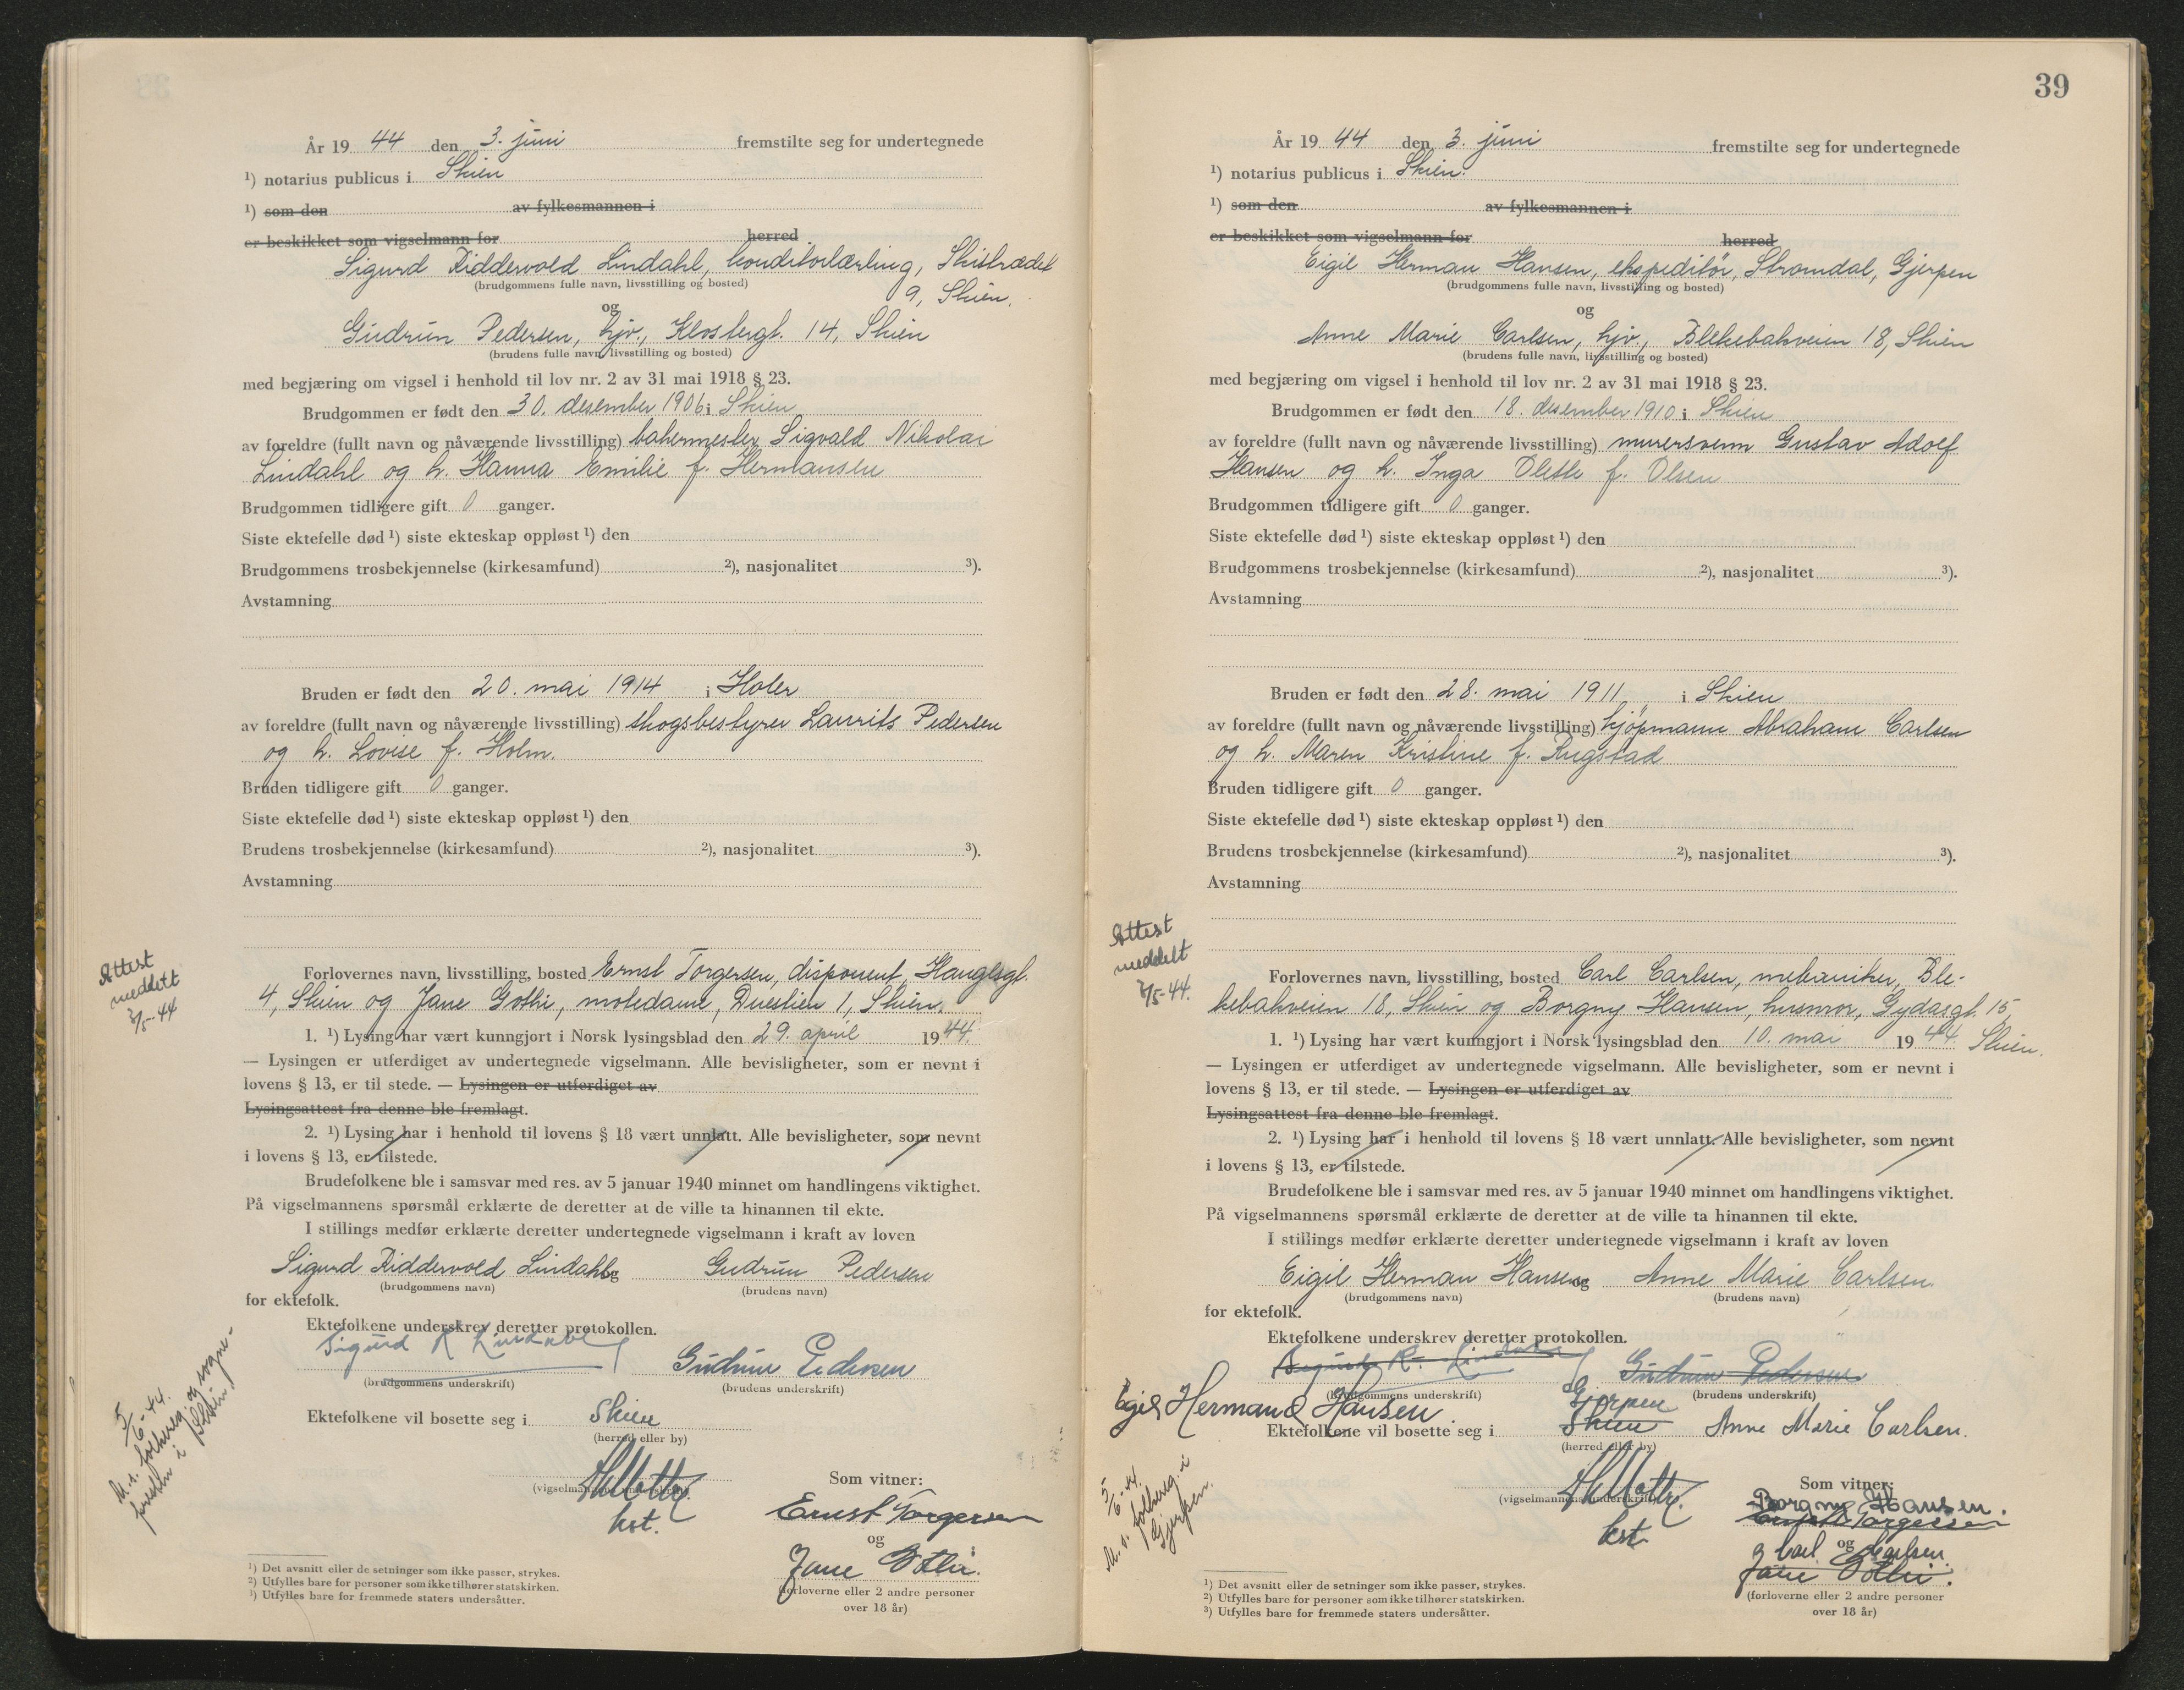 År 19 44 den 3. juni fremstilte seg for undertegnede
¹) notarius publicus i Skien
¹) som den av fylkesmannen i
er beskikket som vigselmann for herred
Sigurd Riddervold Lindahl, konditorlærling, Skistredet
(brudgommens fulle navn, livsstilling og bosted)
9, Skien.
og
Gudrun Pedersen, hjv., Klostergt. 14, Skien
(brudens fulle navn, livsstilling og bosted)
med begjæring om vigsel i henhold til lov nr. 2 av 31 mai 1918 § 23.
Brudgommen er født den 30. desember 1906 i Skien
av foreldre (fullt navn og nåværende livsstilling) bakermester Sigvald Nikolai
Lindahl og h. Hanna Emilie f. Hermansen
Brudgommen tidligere gift 0 ganger.
Siste ektefelle død ¹) siste ekteskap oppløst ¹) den
Brudgommens trosbekjennelse (kirkesamfund) ²), nasjonalitet ³).
Avstamning
Bruden er født den 20. mai 1914 i Holer
av foreldre (fullt navn og nåværende livsstilling) skogsbestyrer Laurits Pedersen
og h. Lovise f. Holm.
Bruden tidligere gift 0 ganger.
Siste ektefelle død ¹) siste ekteskap oppløst ¹) den
Brudens trosbekjennelse (kirkesamfund) ²), nasjonalitet ³).
Avstamning
Attest
meddelt
7/5-44
Forlovernes navn, livsstilling, bosted Ernst Torgersen, disponent,
4, Skien og Jane Gothi, motedame, Duestien 1, Skien.
1. ¹) Lysing har vært kunngjort i Norsk lysingsblad den 29. april 19 44.
— Lysingen er utferdiget av undertegnede vigselmann. Alle bevisligheter, som er nevnt i
lovens § 13, er til stede. — Lysingen er utferdiget av
Lysingsattest fra denne ble fremlagt.
2. ¹) Lysing har i henhold til lovens § 18 vært unnlatt. Alle bevisligheter, som nevnt
i lovens § 13, er tilstede.
Brudefolkene ble i samsvar med res. av 5 januar 1940 minnet om handlingens viktighet.
På vigselmannens spørsmål erklærte de deretter at de ville ta hinannen til ekte.
I stillings medfør erklærte deretter undertegnede vigselmann i kraft av loven
Sigurd Riddervold Lindahl og Gudrun Pedersen
(brudgommens navn) (brudens navn)
for ektefolk.
Ektefolkene underskrev deretter protokollen.
Sigurd R Lindahl Gudrun Pedersen
(brudgommens underskrift) (brudens underskrift)
Ektefolkene vil bosette seg i Skien
(herred eller by)
5/6-44.
M. s. folkereg. og sogne-
presten i Skien
(vigselmannens underskrift)
kst.
Som vitner:
Ernst Torgersen
og
Jane Gothi.
(forloverne eller 2 andre personer
over 18 år)
¹) Det avsnitt eller de setninger som ikke passer, strykes.
²) Utfylles bare for personer som ikke tilhører statskirken.
³) Utfylles bare for fremmede staters undersåtter.
39
År 19 44 den 3. juni fremstilte seg for undertegnede
¹) notarius publicus i Skien.
¹) som den av fylkesmannen i
er beskikket som vigselmann for herred
Eigil Herman Hansen, ekspeditør, Strømdal, Gjerpen
(brudgommens fulle navn, livsstilling og bosted)
og
Anne Marie Carlsen, hjv., Blekebakveien 18, Skien
(brudens fulle navn, livsstilling og bosted)
med begjæring om vigsel i henhold til lov nr. 2 av 31 mai 1918 § 23.
Brudgommen er født den 18. desember 1910 i Skien
av foreldre (fullt navn og nåværende livsstilling) murersvenn Gustav Adolf
Hansen og h. Inga Olette f. Olsen
Brudgommen tidligere gift 0 ganger.
Siste ektefelle død ¹) siste ekteskap oppløst ¹) den
Brudgommens trosbekjennelse (kirkesamfund) ²), nasjonalitet ³).
Avstamning
Bruden er født den 28. mai 1911 i Skien
av foreldre (fullt navn og nåværende livsstilling) kjøpmann Abraham Carlsen
og h. Maren Kristine f. Rugstad
Bruden tidligere gift 0 ganger.
Siste ektefelle død ¹) siste ekteskap oppløst ¹) den
Brudens trosbekjennelse (kirkesamfund) ²), nasjonalitet ³).
Avstamning
Attest
meddelt
7/5-44.
Forlovernes navn, livsstilling, bosted Carl Carlsen, mekaniker, Ble-
kebakveien 18, Skien og Borgny Hansen, husmor, Gydasgt. 15,
1. ¹) Lysing har vært kunngjort i Norsk lysingsblad den 10. mai 19 44. Skien.
— Lysingen er utferdiget av undertegnede vigselmann. Alle bevisligheter, som er nevnt i
lovens § 13, er til stede. — Lysingen er utferdiget av
Lysingsattest fra denne ble fremlagt.
2. ¹) Lysing har i henhold til lovens § 18 vært unnlatt. Alle bevisligheter, som nevnt
i lovens § 13, er tilstede.
Brudefolkene ble i samsvar med res. av 5 januar 1940 minnet om handlingens viktighet.
På vigselmannens spørsmål erklærte de deretter at de ville ta hinannen til ekte.
I stillings medfør erklærte deretter undertegnede vigselmann i kraft av loven
Eigil Herman Hansen og Anne Marie Carlsen.
(brudgommens navn) (brudens navn)
for ektefolk.
Ektefolkene underskrev deretter protokollen.
Sigurd R. Lindahl Gudrun Pedersen
(brudgommens underskrift) og (brudens underskrift)
Egil Herman Hansen Gjerpen
Ektefolkene vil bosette seg i Skien Anne Marie Carlsen.
(herred eller by)
5/6-44.
M. s. folkereg. i
Gjerpen.
(vigselmannens underskrift)
kst.
Som vitner:
Borgny Hansen.
Ernst Torgersen
og
Carl Carlsen
Jane Gothi.
(forloverne eller 2 andre personer
over 18 år)
¹) Det avsnitt eller de setninger som ikke passer, strykes.
²) Utfylles bare for personer som ikke tilhører statskirken.
³) Utfylles bare for fremmede staters undersåtter.